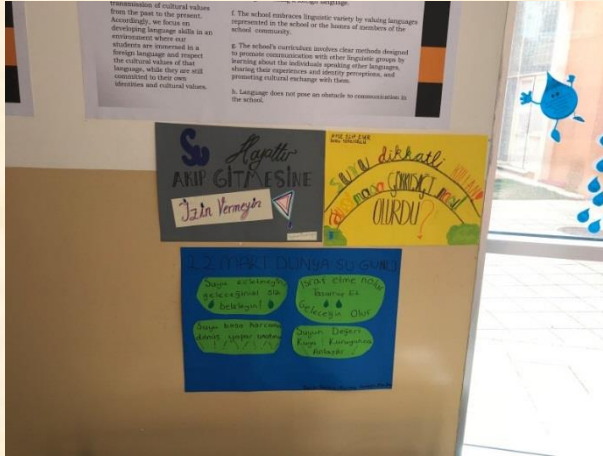 transmission of cultural values
from the past to the present.
Accordingly, we focus on
developing language skills in an
environment where our
students are immersed in a
foreign language and respect
the cultural values of that
language, while they are still
committed to their own
identities and cultural values.
language.
f. The school embraces linguistic variety by valuing languages
represented in the school or the homes of members of the
school community.
g. The school's curriculum involves clear methods designed
to promote communication with other linguistic groups by
learning about the individuals speaking other languages,
sharing their experiences and identity perceptions, and
promoting cultural exchange with them.
h. Language does not pose an obstacle to communication in
the school.
Su Hayattır
AKIP GİTMESİNE
İzin Vermeyin
suyu dikkatli
GÖKKUŞAĞI nasıl
OLURDU?
22 MART DÜNYA SU GÜNÜ
Suyu kirletmeyin
geleceğinizi
bekleyin!
İsraf etme
tasarruf Et
Geleceğin Olur
Suyu boşa harcama
Suyun Değeri
Kuyu Kuruyunca
Anlaşılır